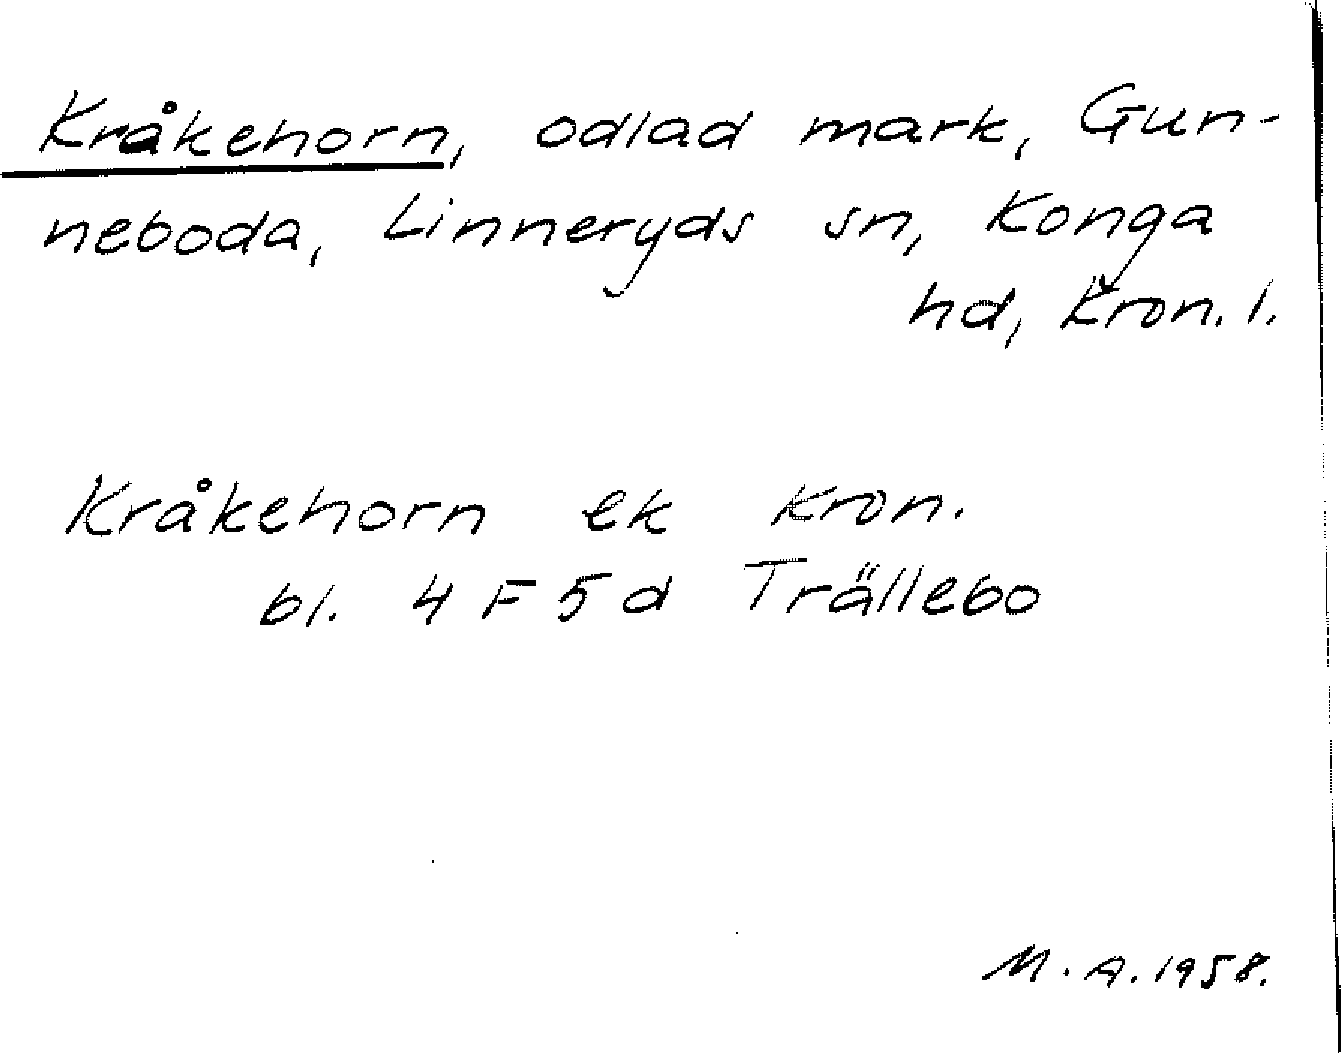 Kråkehorn, odlad mark, Gun-
neboda, Linneryds sn, Konga
hd, Kron. l.
Kråkehorn ek Kron.
bl. 4 F 5 d Trällebo
M. A. 1958.